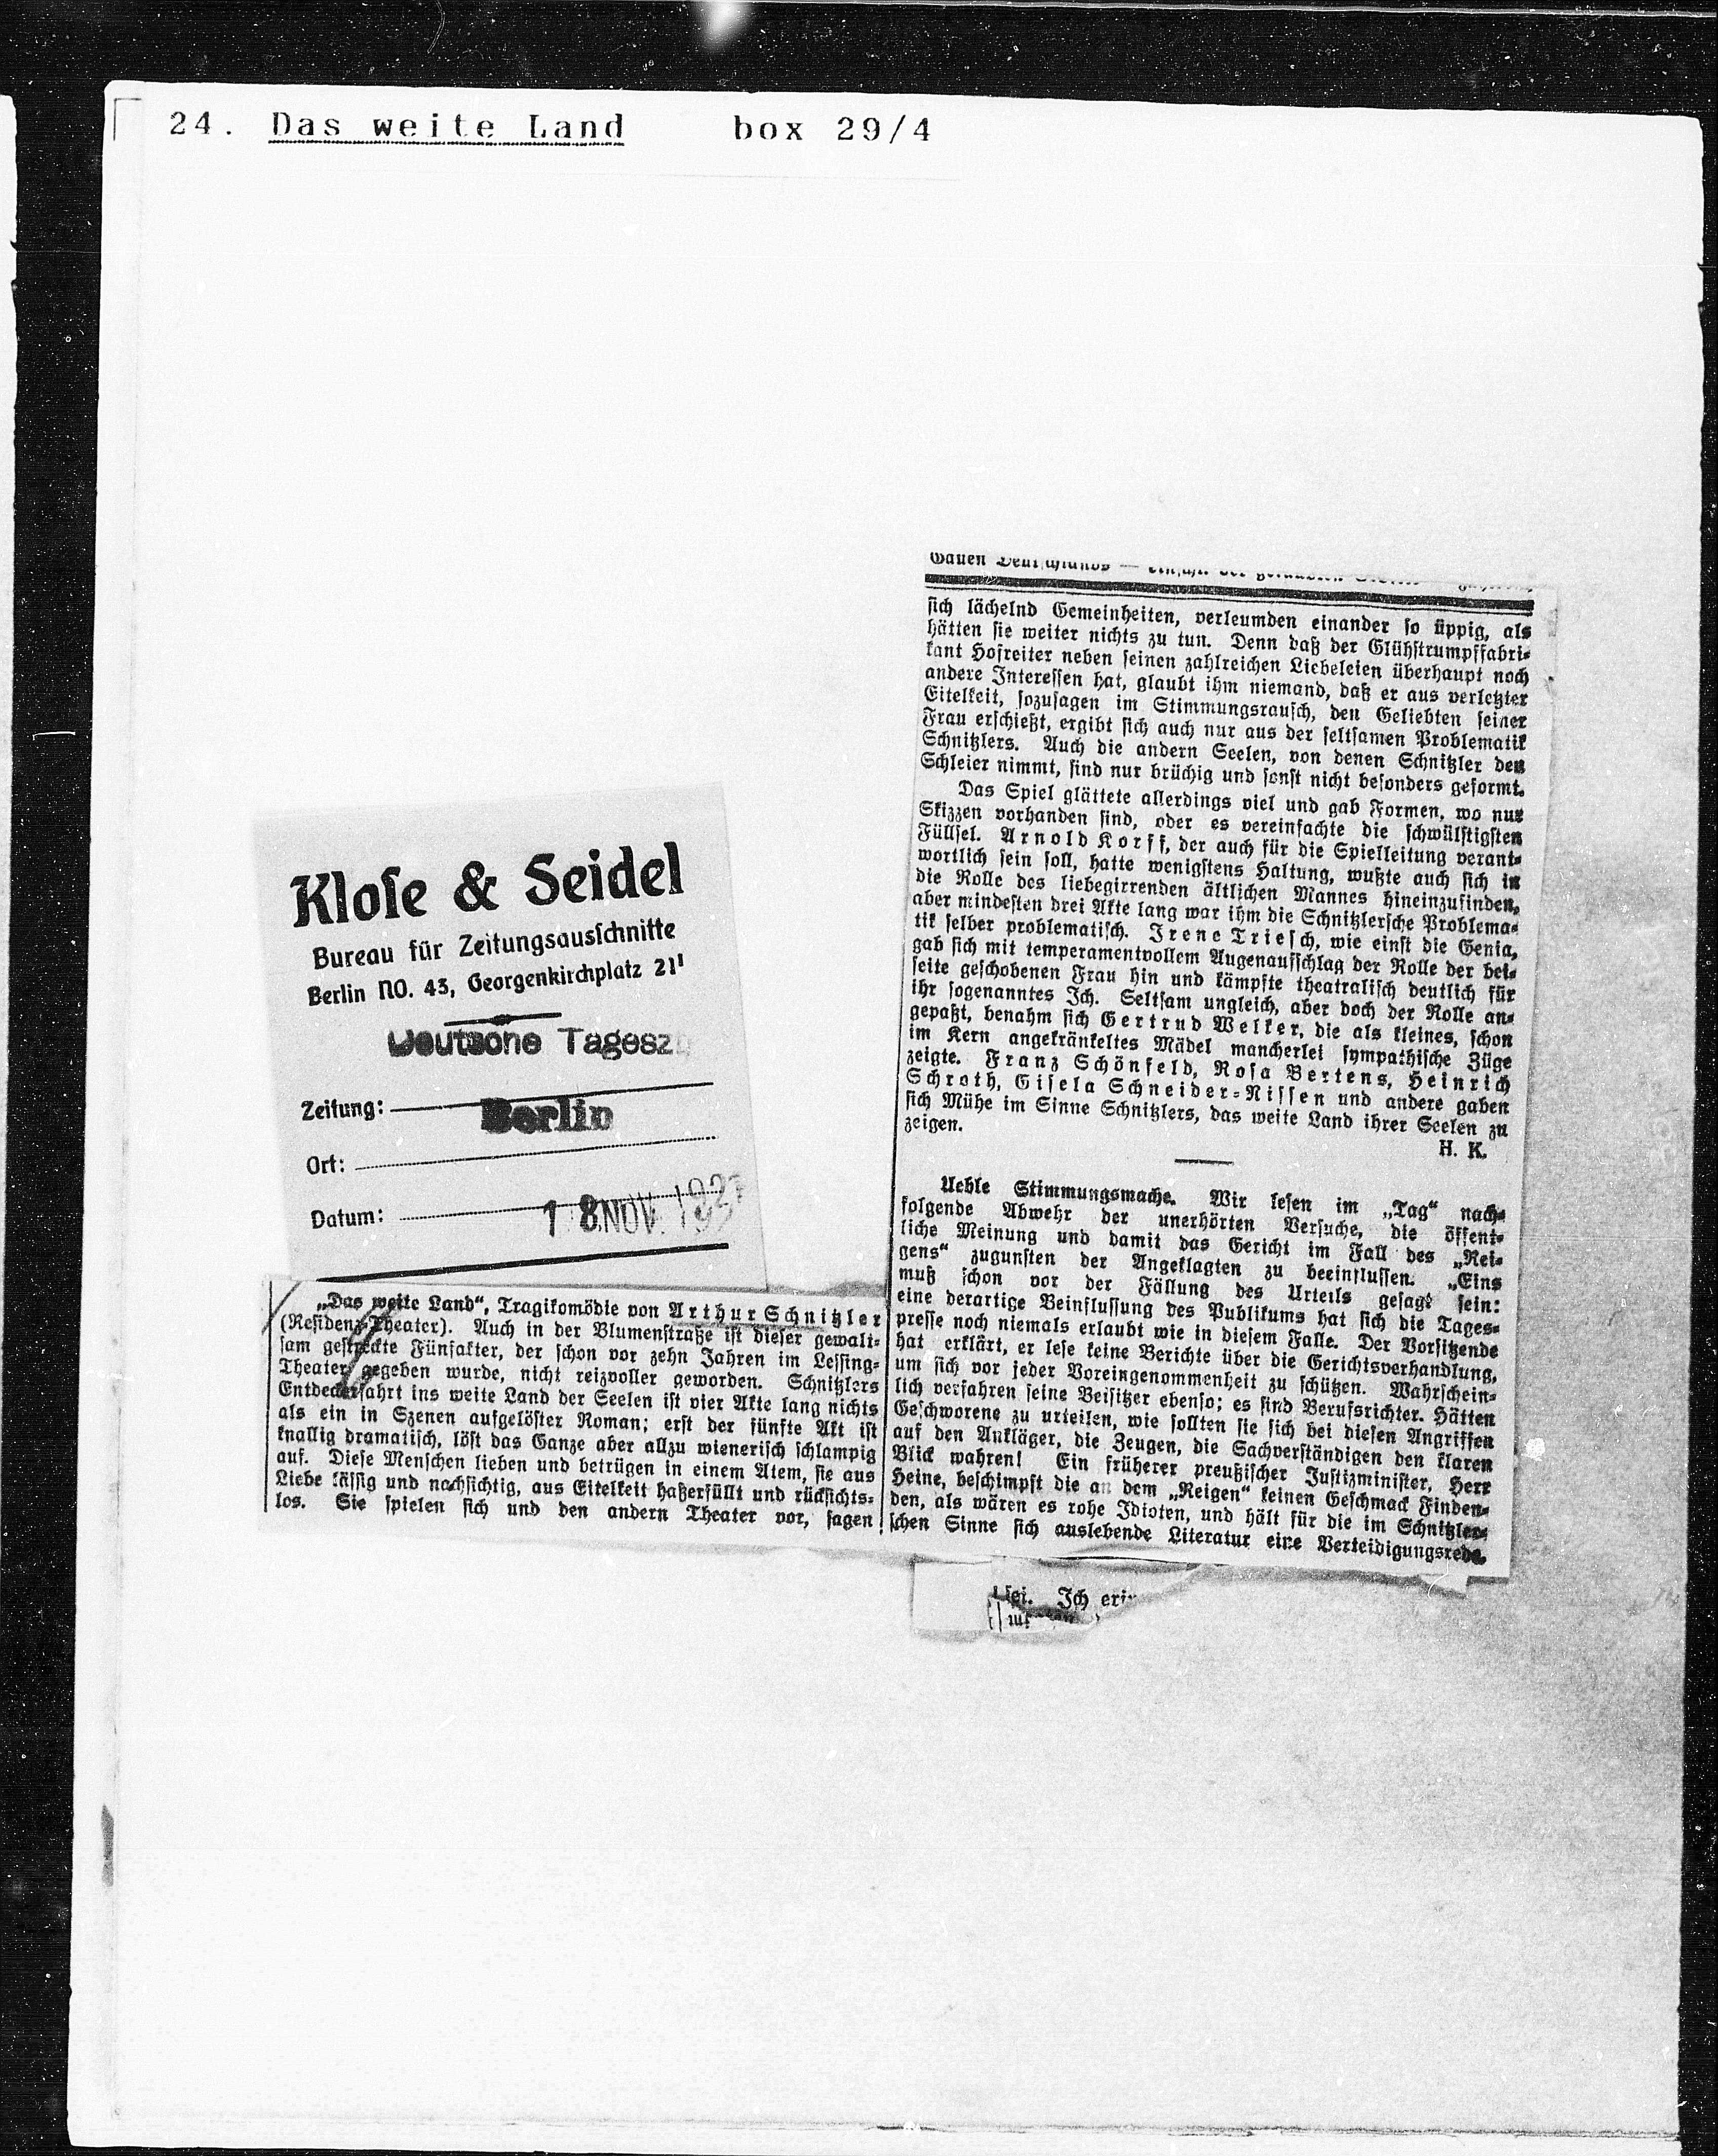 24. Das weite Land box 29/4
Klose & Seidel
Bureau für Zeitungsausschnitte
Berlin NO. 43, Georgenkirchplatz 21¹
Deutsche Tagesz
Zeitung:
Berlin
Ort:
Datum: 18 NOV. 192
„Das weite Land“, Tragikomödie von Arthur Schnitzler
(Residenz-Theater). Auch in der Blumenstraße ist dieser gewalt-
sam gestreckte Fünfakter, der schon vor zehn Jahren im Lessing-
Theater gegeben wurde, nicht reizvoller geworden. Schnitzlers
Entdeckerfahrt ins weite Land der Seelen ist vier Akte lang nichts
als ein in Szenen aufgelöster Roman; erst der fünfte Akt ist
knallig dramatisch, löst das Ganze aber allzu wienerisch schlampig
auf. Diese Menschen lieben und betrügen in einem Atem, sie aus
Liebe lässig und nachsichtig, aus Eitelkeit haßerfüllt und rücksichts-
los. Sie spielen sich und den andern Theater vor, sagen
Gauen Deutschlands —
sich lächelnd Gemeinheiten, verleumden einander so üppig, als
hätten sie weiter nichts zu tun. Denn daß der Glühstrumpffabri-
kant Hofreiter neben seinen zahlreichen Liebeleien überhaupt noch
andere Interessen hat, glaubt ihm niemand, daß er aus verletzter
Eitelkeit, sozusagen im Stimmungsrausch, den Geliebten seiner
Frau erschießt, ergibt sich auch nur aus der seltsamen Problematik
Schnitzlers. Auch die andern Seelen, von denen Schnitzler den
Schleier nimmt, sind nur brüchig und sonst nicht besonders geformt.
Das Spiel glättete allerdings viel und gab Formen, wo nur
Skizzen vorhanden sind, oder es vereinfachte die schwülstigsten
Füllsel. Arnold Korff, der auch für die Spielleitung verant-
wortlich sein soll, hatte wenigstens Haltung, wußte auch sich in
die Rolle des liebegirrenden ältlichen Mannes hineinzufinden,
aber mindesten drei Akte lang war ihm die Schnitzlersche Problema-
tik selber problematisch. Irene Triesch, wie einst die Genia,
gab sich mit temperamentvollem Augenaufschlag der Rolle der bei-
seite geschobenen Frau hin und kämpfte theatralisch deutlich für
ihr sogenanntes Ich. Seltsam ungleich, aber doch der Rolle an-
gepaßt, benahm sich Gertrud Welker, die als kleines, schon
im Kern angekränkeltes Mädel mancherlei sympathische Züge
zeigte. Franz Schönfeld, Rosa Bertens, Heinrich
Schroth, Gisela Schneider-Nissen und andere gaben
sich Mühe im Sinne Schnitzlers, das weite Land ihrer Seelen zu
zeigen.
H. K.
Ueble Stimmungsmache. Wir lesen im „Tag“ nach-
folgende Abwehr der unerhörten Versuche, die öffent-
liche Meinung und damit das Gericht im Fall des „Rei-
gens“ zugunsten der Angeklagten zu beeinflussen. „Eins
muß schon vor der Fällung des Urteils gesagt sein:
eine derartige Beinflussung des Publikums hat sich die Tages-
presse noch niemals erlaubt wie in diesem Falle. Der Vorsitzende
hat erklärt, er lese keine Berichte über die Gerichtsverhandlung,
um sich vor jeder Voreingenommenheit zu schützen. Wahrschein-
lich verfahren seine Beisitzer ebenso; es sind Berufsrichter. Hätten
Geschworene zu urteilen, wie sollten sie sich bei diesen Angriffen
auf den Ankläger, die Zeugen, die Sachverständigen den klaren
Blick wahren! Ein früherer preußischer Justizminister, Herr
Heine, beschimpft die an dem „Reigen“ keinen Geschmack Finden-
den, als wären es rohe Idioten, und hält für die im Schnitzler-
schen Sinne sich auslebende Literatur eine Verteidigungsrede.
sei. Ich eri